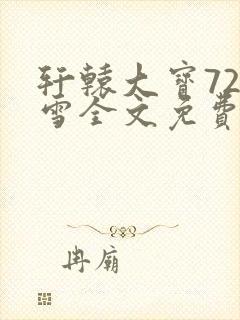 轩辕大宝72
雪全文免费
冉廟